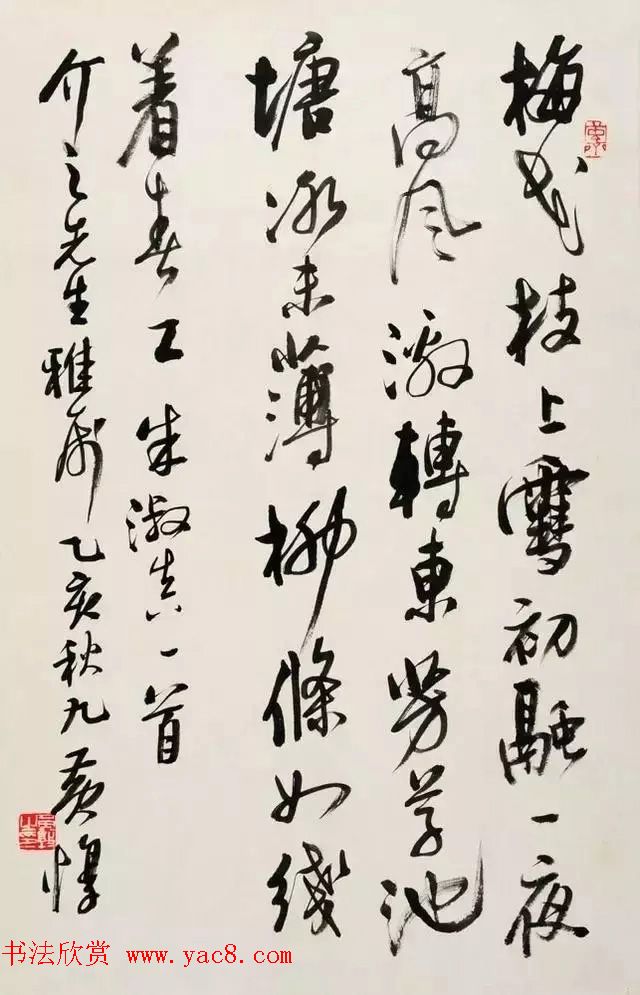 梅花枝上雪初融一夜
高风激轉東芳草池
塘冰未薄柳條如綫
着春工 朱淑真一首
介之先生雅属 乙亥秋九 黄惇
书法欣赏 www.yac8.com